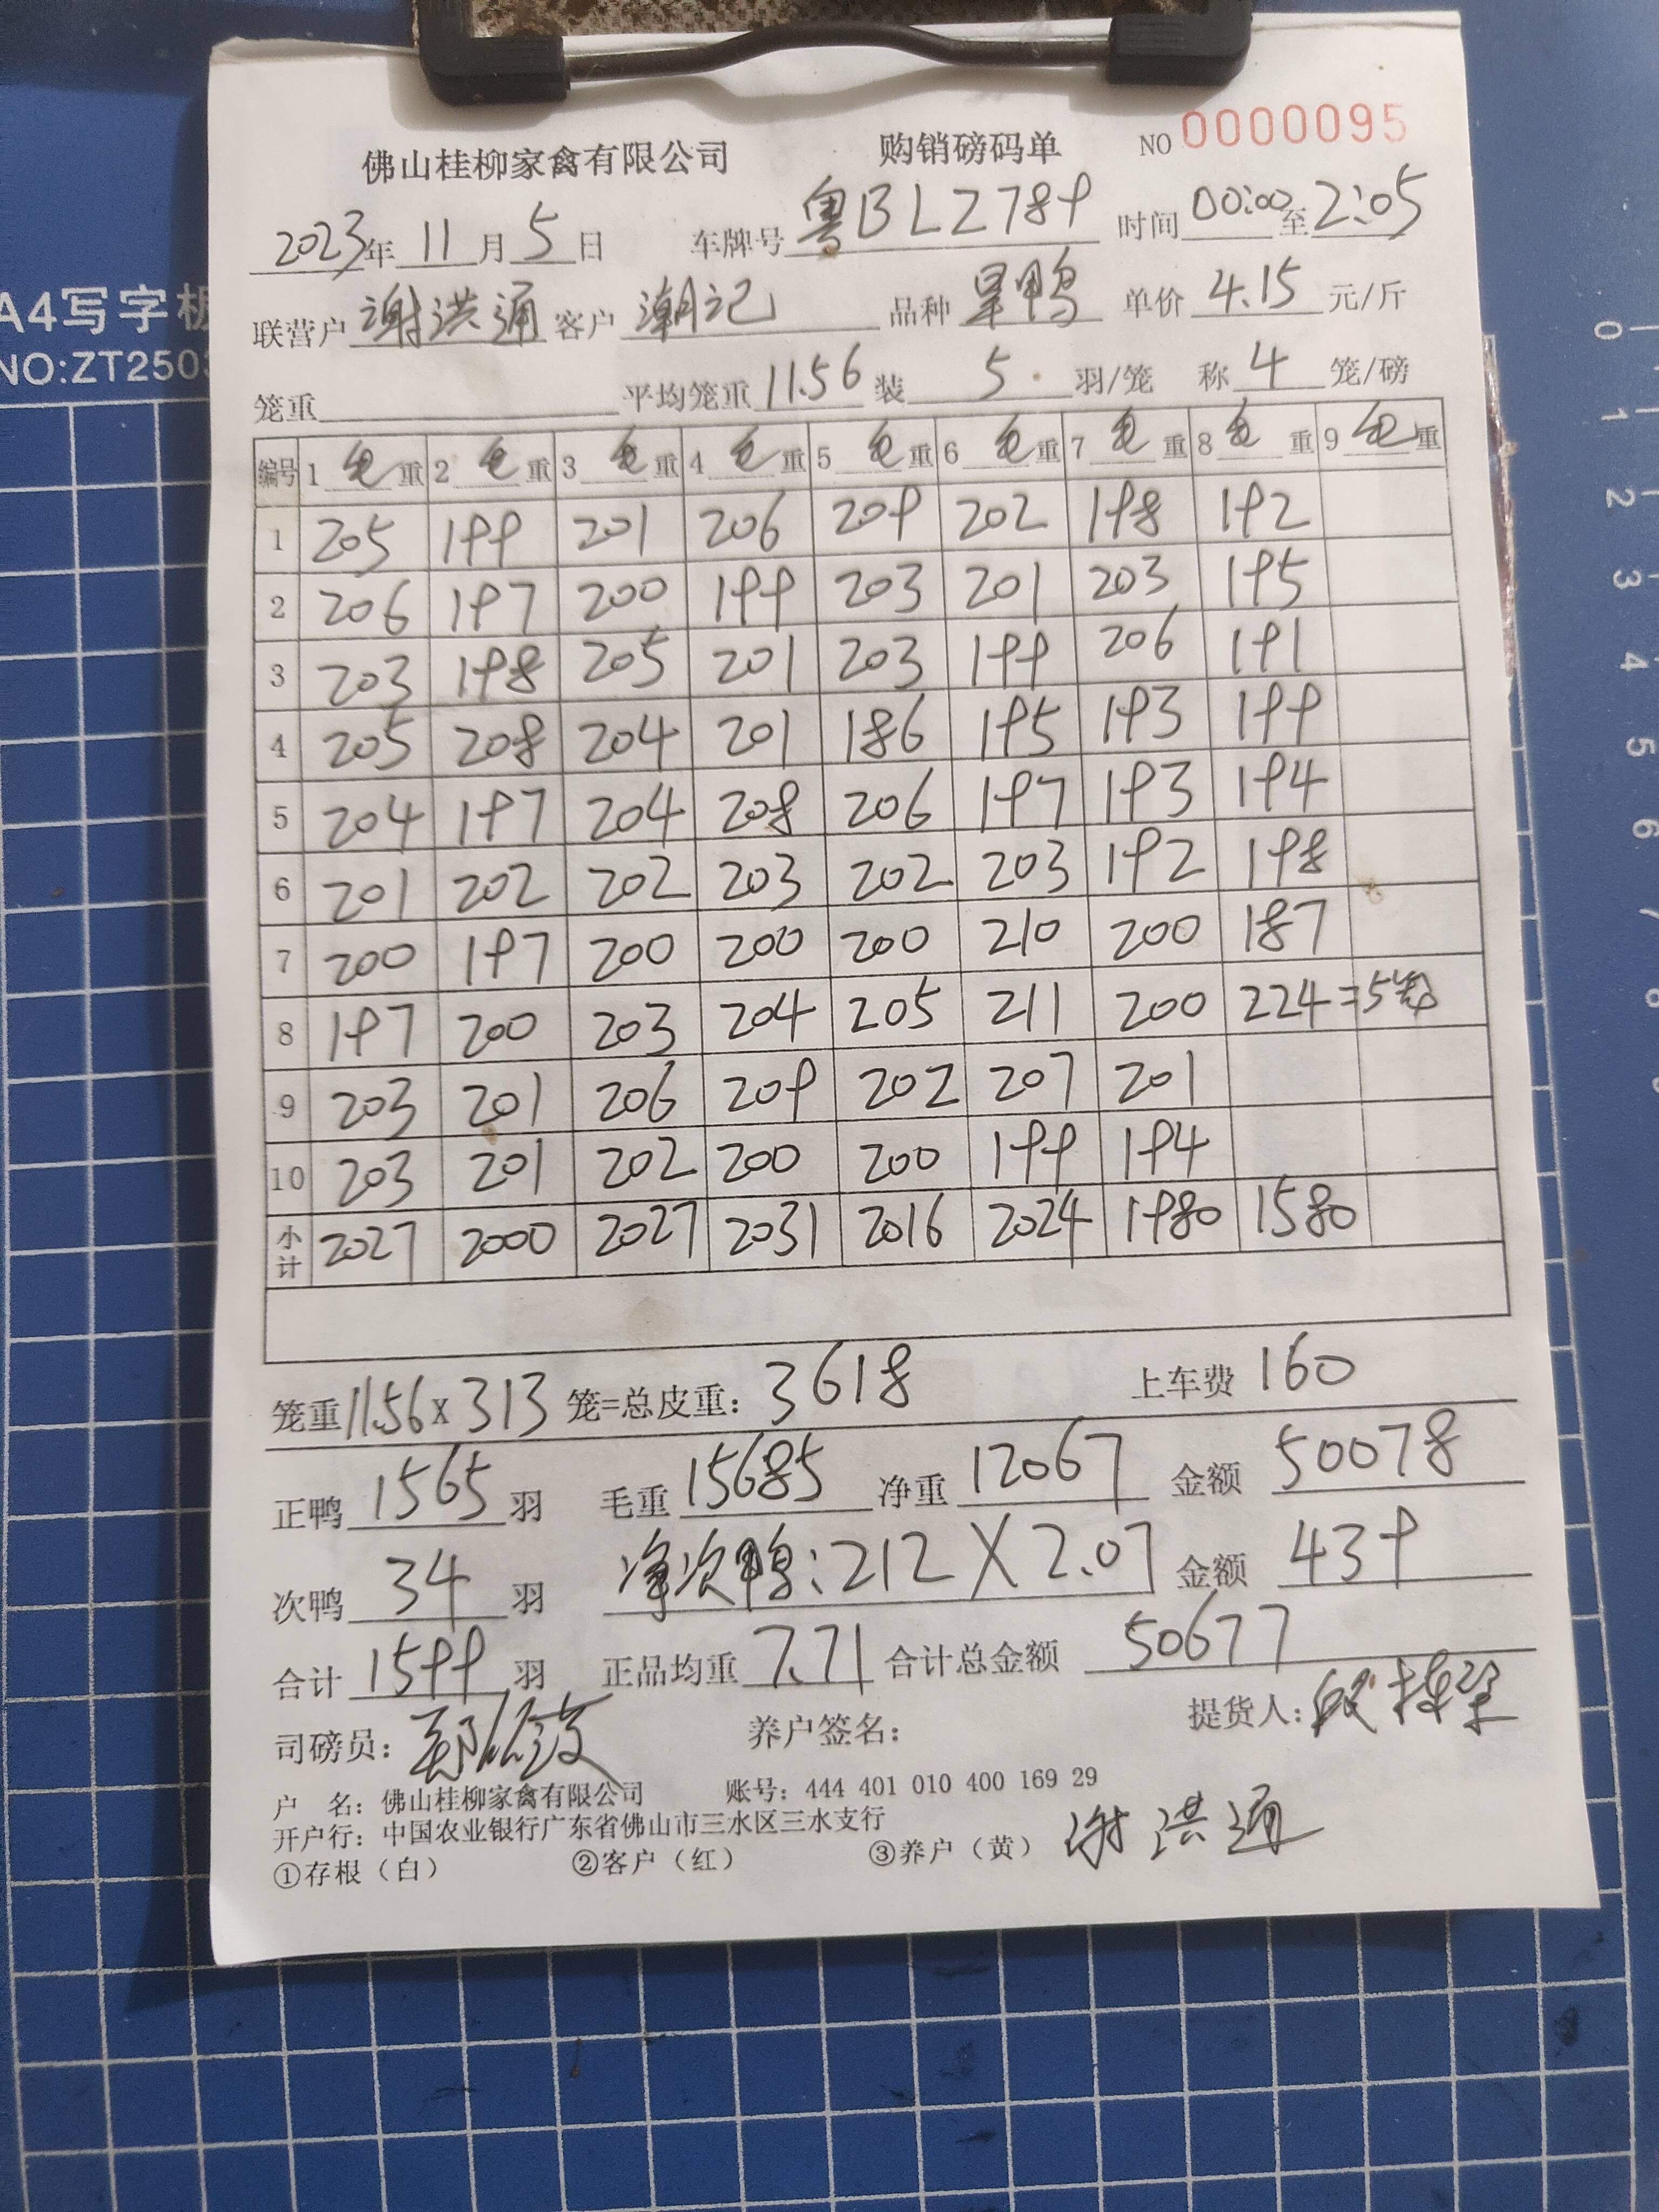 佛山桂柳家禽有限公司 购销磅码单 NO 0000095
2023年 11 月 5 日 车牌号 粤BLZ789 时间 00:00 至 2:05
联营户 谢洪通 客户 潮记 品种 旱鸭 单价 4.15 元/斤
笼重 平均笼重 11.56 装 5 羽/笼 称 4 笼/磅
编号 1 毛重 2 毛重 3 毛重 4 毛重 5 毛重 6 毛重 7 毛重 8 毛重 9 毛重
1 205 199 201 206 209 202 198 192
2 206 197 200 199 203 201 203 195
3 203 198 205 201 203 199 206 191
4 205 208 204 201 186 195 193 199
5 204 197 204 208 206 197 193 194
6 201 202 202 203 202 203 192 198
7 200 197 200 200 200 210 200 187
8 197 200 203 204 205 211 200 224=5笼
9 203 201 206 209 202 207 201
10 203 201 202 200 200 199 194
小计 2027 2000 2027 2031 2016 2024 1980 1580
笼重 11.56 x 313 笼=总皮重: 3618 上车费 160
正鸭 1565 羽 毛重 15685 净重 12067 金额 50078
次鸭 34 羽 净次鸭:212 X 2.07 金额 439
合计 1599 羽 正品均重 7.71 合计总金额 50677
司磅员: 养户签名: 提货人:
户 名: 佛山桂柳家禽有限公司 账号: 444 401 010 400 169 29
开户行: 中国农业银行广东省佛山市三水区三水支行
①存根(白) ②客户(红) ③养户(黄) 谢洪通
A4写字板
NO:ZT2503
0
1
2
3
4
5
6
7
8